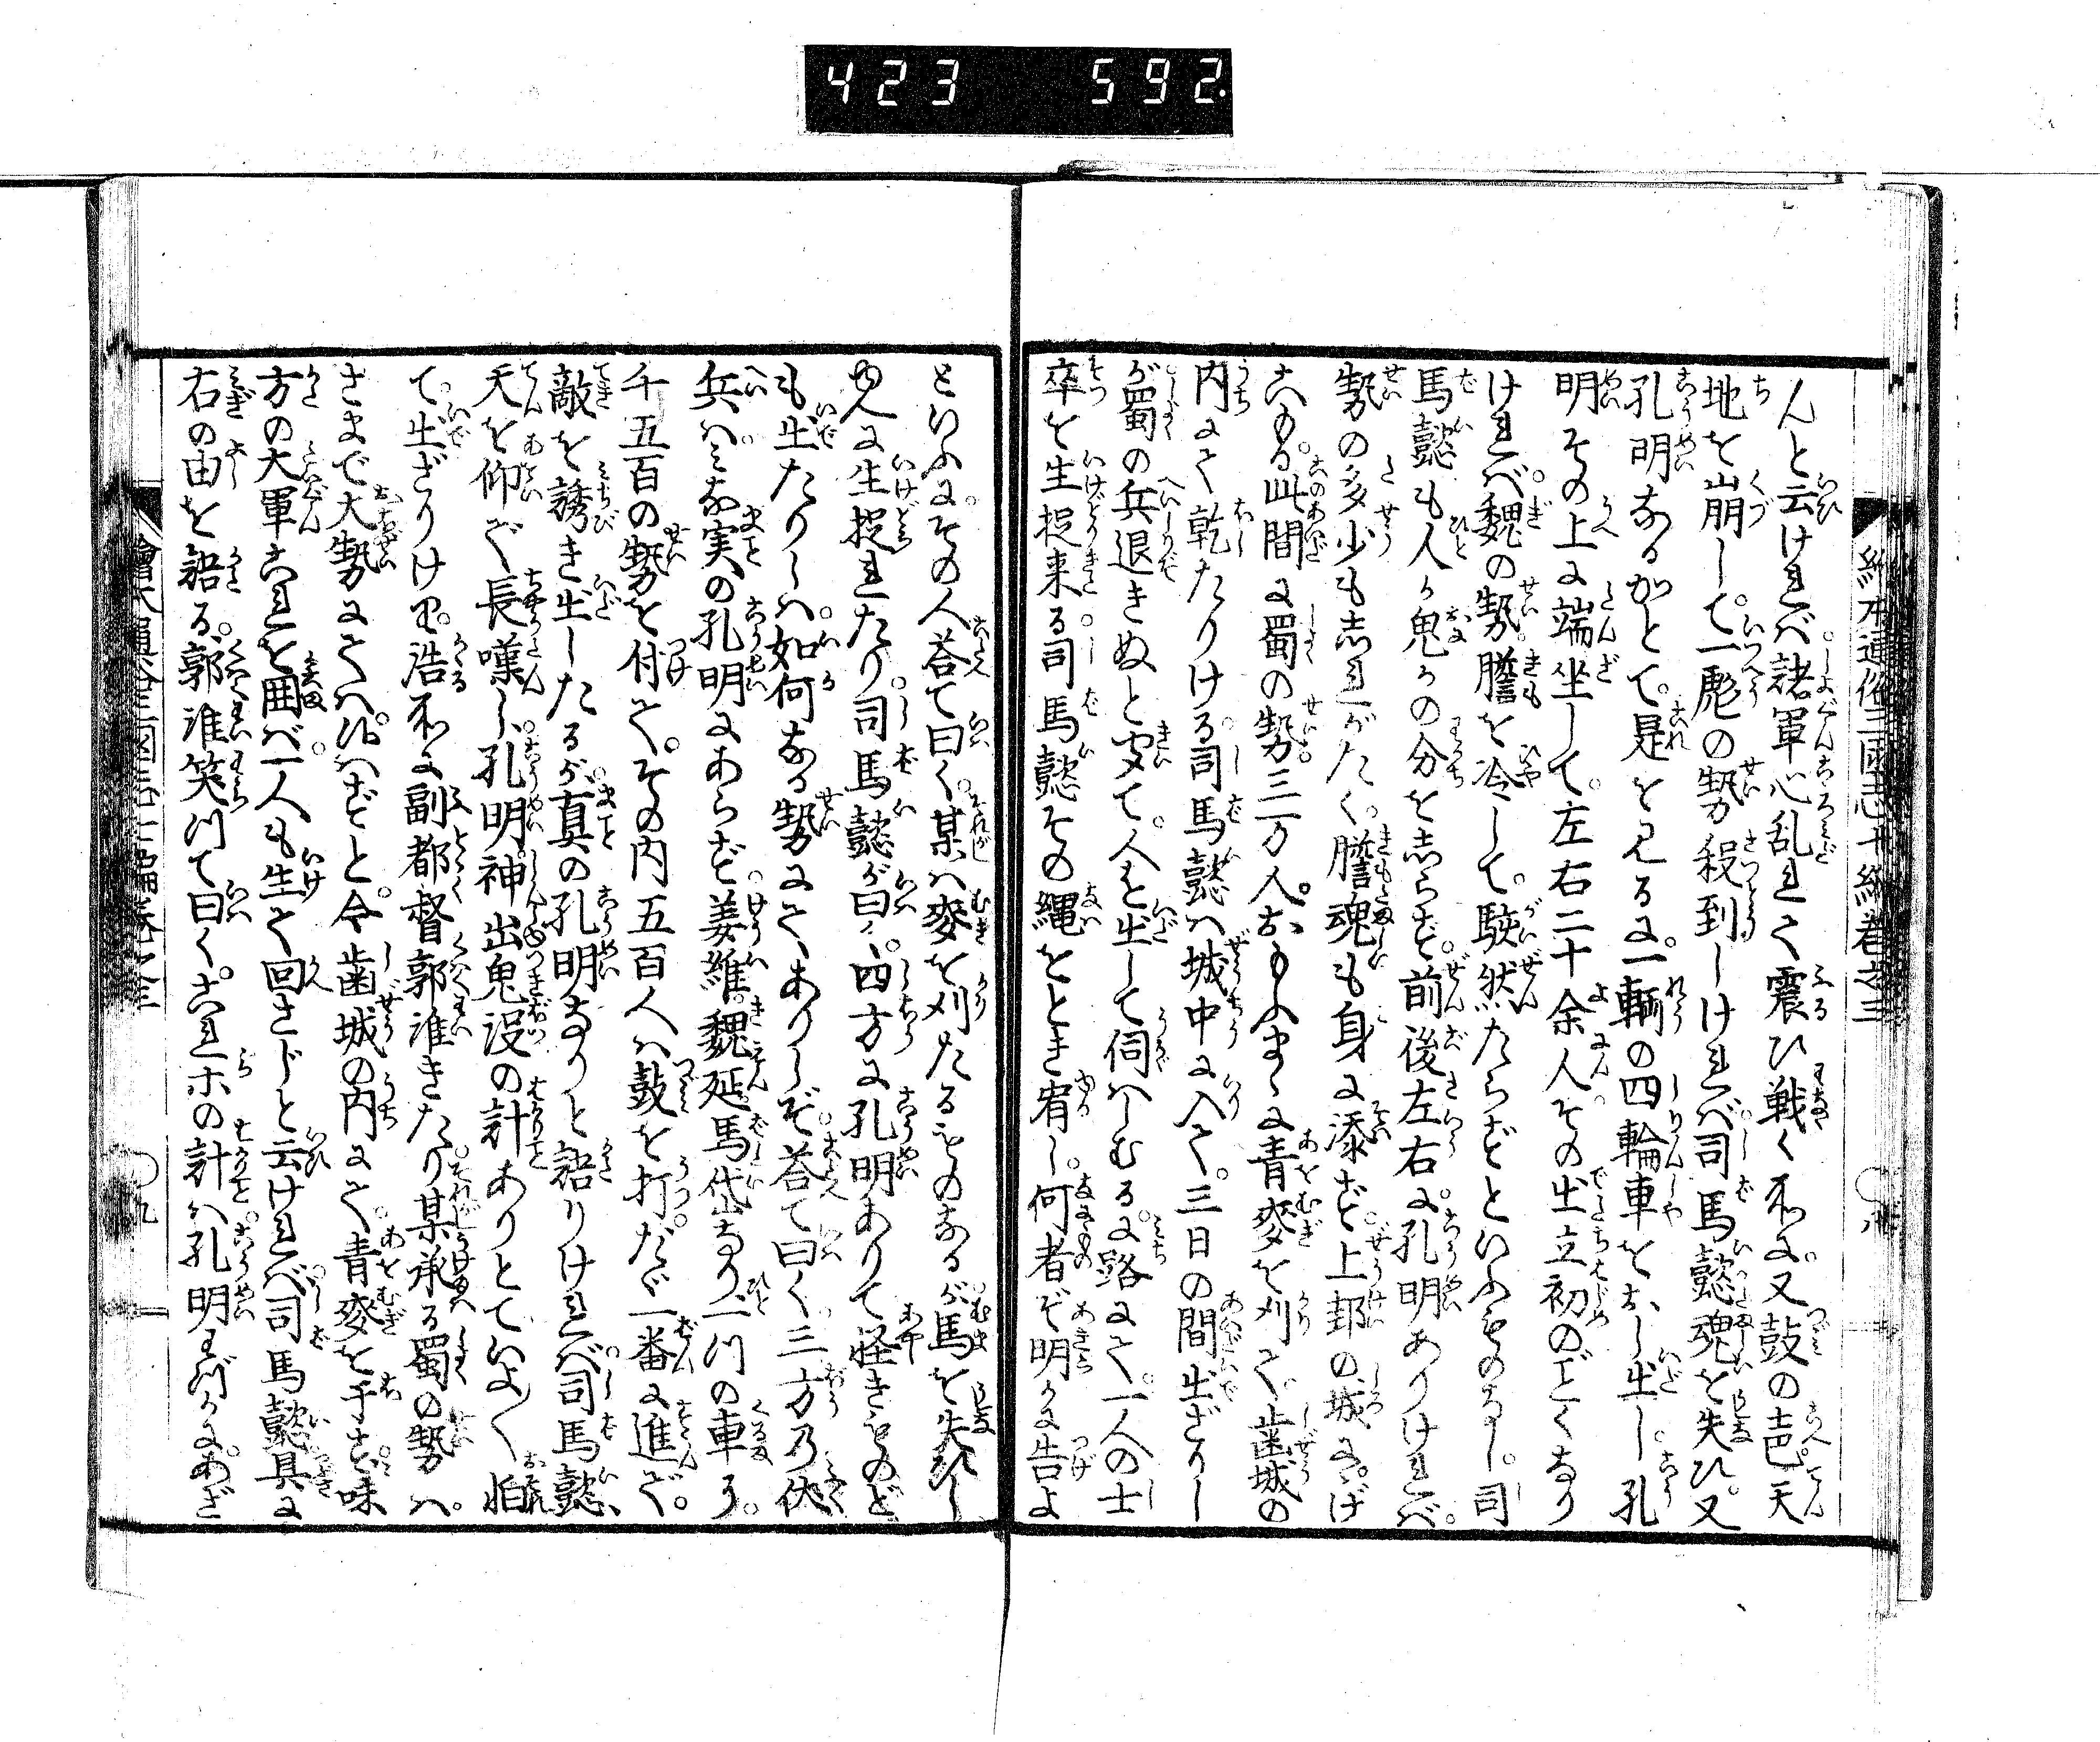 423 592
絵本通俗三國志十編巻之三 〇八
んと云ければ諸軍心乱れて震ひ戦く所に。又鼓の声天
地を崩して。一彪の勢殺到しければ。司馬懿魂を失ひ。又
孔明なるかとて。是を見るに。一輌の四輪車をおし出し。孔
明その上に端坐して。左右二十余人。その出立初のごとくなり
ければ。魏の勢。膽を冷して。駭然たらずといふものなし。司
馬懿も人か鬼かの分をしらず。前後左右に。孔明ありければ。
勢の多少もしれがたく。膽魂も身に添ず。上邽の城に。にげ
こもる。此間に蜀の勢。三万人。おもふまゝに青麥を刈て。歯城の
内にて乾たりける。司馬懿は城中に入て。三日の間出ざりし
が。蜀の兵退きぬと聞て。人を出して伺はしむるに。路にて。一人の士
卒を生捉来る。司馬懿その縄をとき宥し。何者ぞ明かに告よ
といふに。その人荅て曰く。某は麥を刈たるものなるが。馬を失ひし
ゆへに生捉れたり。司馬懿が曰、四方に孔明ありて怪きものど
も出たりしは。如何なる勢にて、ありしぞ。荅て曰く、三方の伏
兵は。みな実の孔明にあらず。姜維。魏延。馬岱なり。一ツの車に。
千五百の勢を付て。その内五百人は鼓を打。たゞ一番に進で。
敵を誘き出したるが。真の孔明なりと語りければ。司馬懿、
天を仰で長嘆し。孔明神出鬼没の計ありとていよ〱怕
て。出ざりけり。浩所に副都督郭淮きたり。某承る蜀の勢は。
さまで大勢にては。候はずと。今歯城の内にて。青麥を干ず。味
方の大軍これを囲ば。一人も生て回さじと云ければ。司馬懿具に
右の由を語る。郭淮笑ツて曰く。これホの計は孔明わづかに。あざ
繪本通俗三國志十編巻之三 〇九